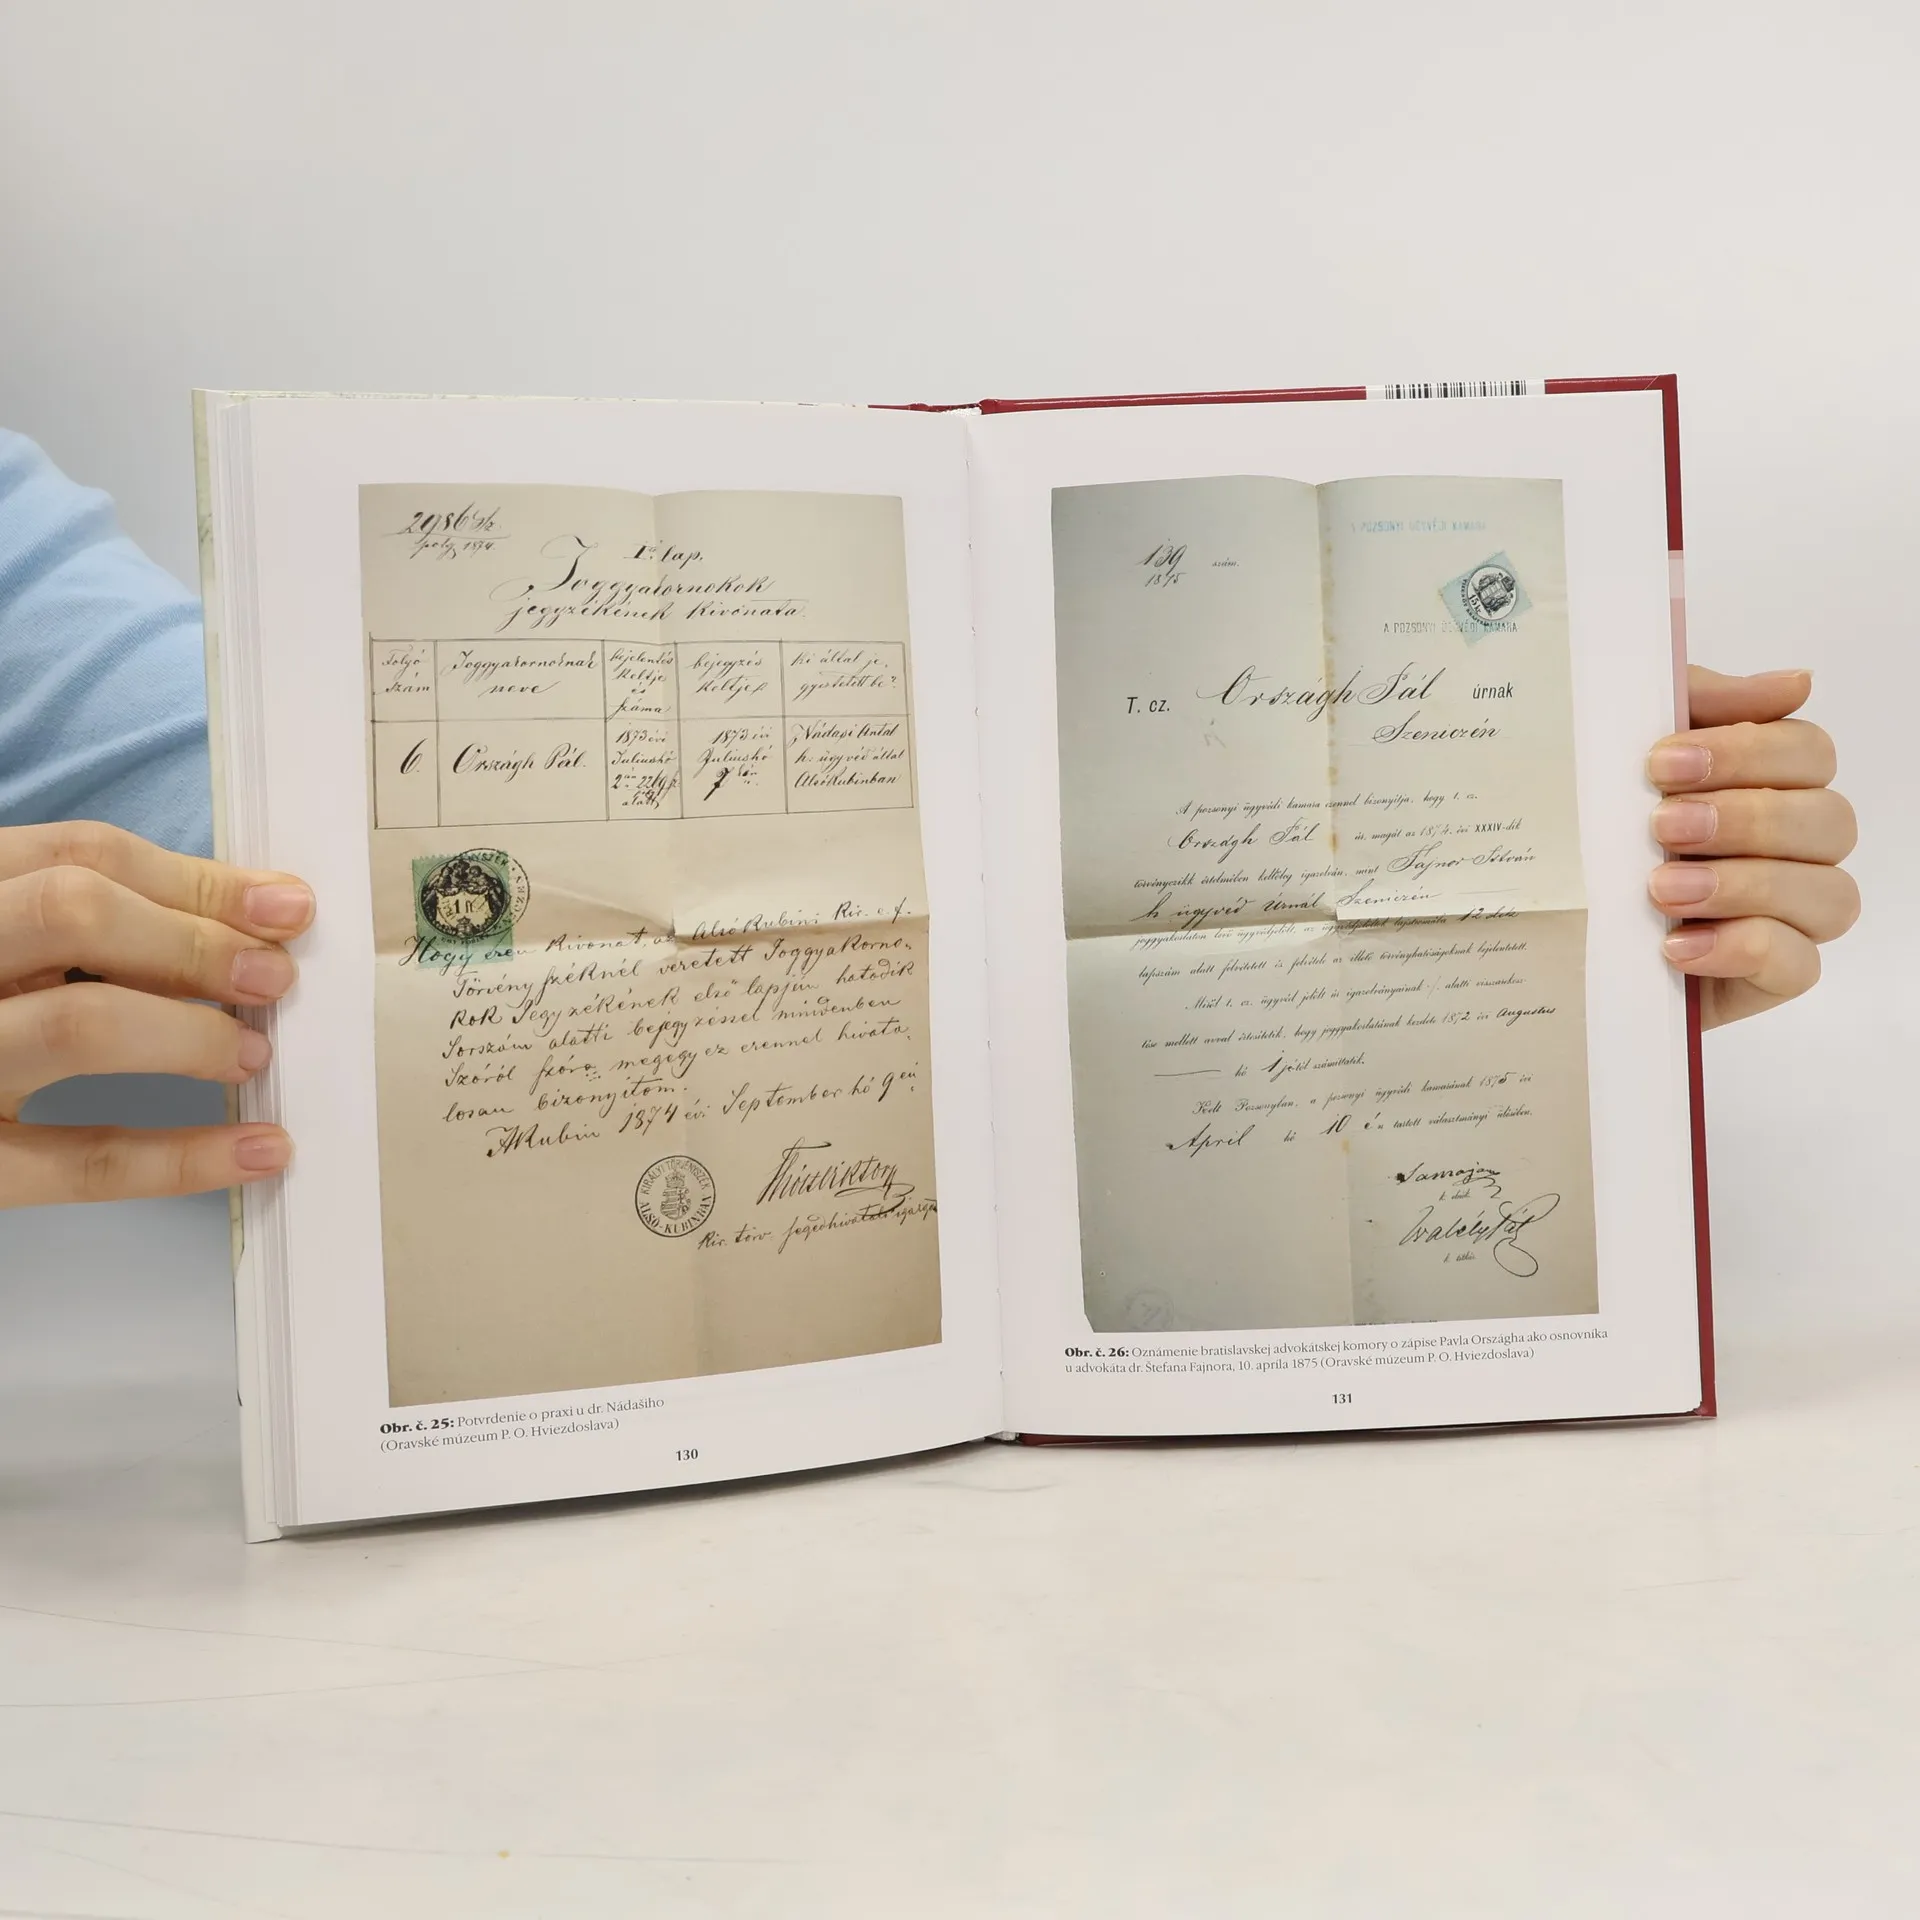 2986 Sz.
polg 1874.
I.ső lap.
Joggyakornokok
jegyzékének kivonata.
Folyó szám
Joggyakornoknak neve
bejelentés keltje és száma
bejegyzés keltje
ki által jegyeztetett be?
6.
Országh Pál.
1873 évi Juliushó 2án 2219 sz. alatt
1873 évi Juliushó 7kén
Nádasi Antal h. ügyvéd által AlsóKubinban
1 ft
Hogy ezen kivonat, az AlsóKubini Kir. e. f.
Törvényszéknél vezetett Joggyakorno-
kok Jegyzékének első lapján hatodik
Sorszám alatti bejegyzéssel mindenben
Szóról szóra megegyez ezennel hivata-
losan bizonyitom.
AKubin 1874 évi September hó 9én
KIRÁLYI TÖRVÉNYSZÉK ALSÓ-KUBINBAN
Kir. törv. segedhivatali igazgató
Obr. č. 25: Potvrdenie o praxi u dr. Nádašiho
(Oravské múzeum P. O. Hviezdoslava)
130
139 szám.
1875
15 kr.
A POZSONYI ÜGYVÉDI KAMARA
T. cz. Országh Pál úrnak
Szeniczén
A pozsonyi ügyvédi kamara ezennel bizonyítja, hogy t. cz.
Országh Pál úr, magát az 1874. évi XXXIV-dik
törvényczikk értelmében kellőleg igazolván, mint Fajnor István
h ügyvéd Úrnál Szeniczén
joggyakorlaton levő ügyvédjelölt, az ügyvédjelöltek lajstromába 12dik
lapszám alatt felvétetett és felvétele az illető törvényhatóságoknak bejelentetett.
Miről t. cz. ügyvéd jelölt úr igazolványainak ·/. alatti visszaküldé-
lése mellett avval értesíttetik, hogy joggyakorlatának kezdete 1872 évi Augustus
hó 1 jétől számíttatik.
Kelt Pozsonyban, a pozsonyi ügyvédi kamarának 1875 évi
April hó 10 én tartott választmányi ülésében.
k. elnök.
k. titkár.
Obr. č. 26: Oznámenie bratislavskej advokátskej komory o zápise Pavla Országha ako osnovníka
u advokáta dr. Štefana Fajnora, 10. apríla 1875 (Oravské múzeum P. O. Hviezdoslava)
131